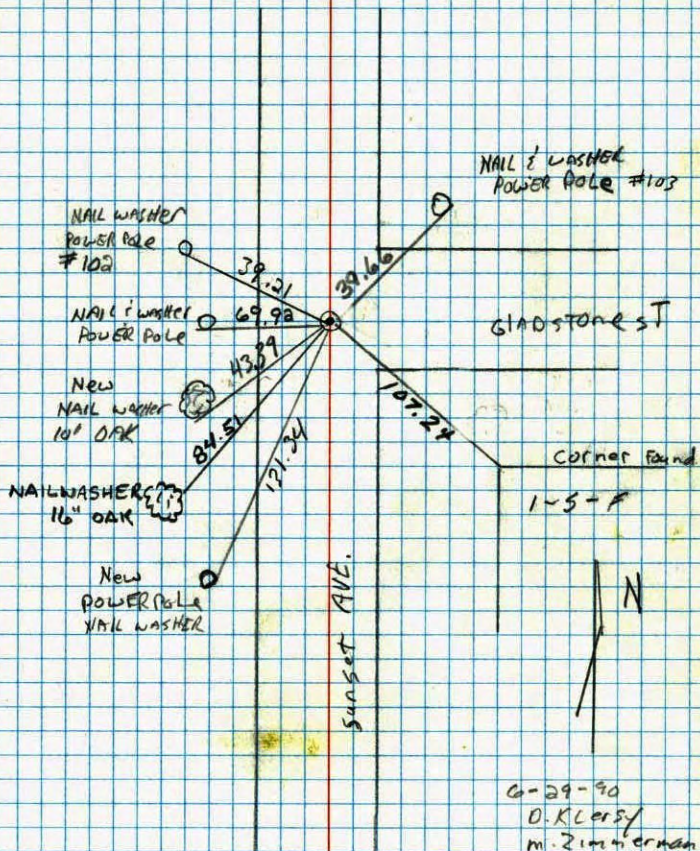 NAIL & WASHER
POWER POLE #103
NAIL WASHER
POWER POLE
#102
39.21
39.66
NAIL & WASHER
POWER POLE
69.92
GLADSTONE ST
43.89
New
NAIL WASHER
10" OAK
107.24
84.51
NAILWASHER
16" OAK
131.34
Corner Found
1-5-F
New
POWER POLE
NAIL WASHER
Sunset AVE.
N
6-29-90
D. KLersy
m. Zimmerman